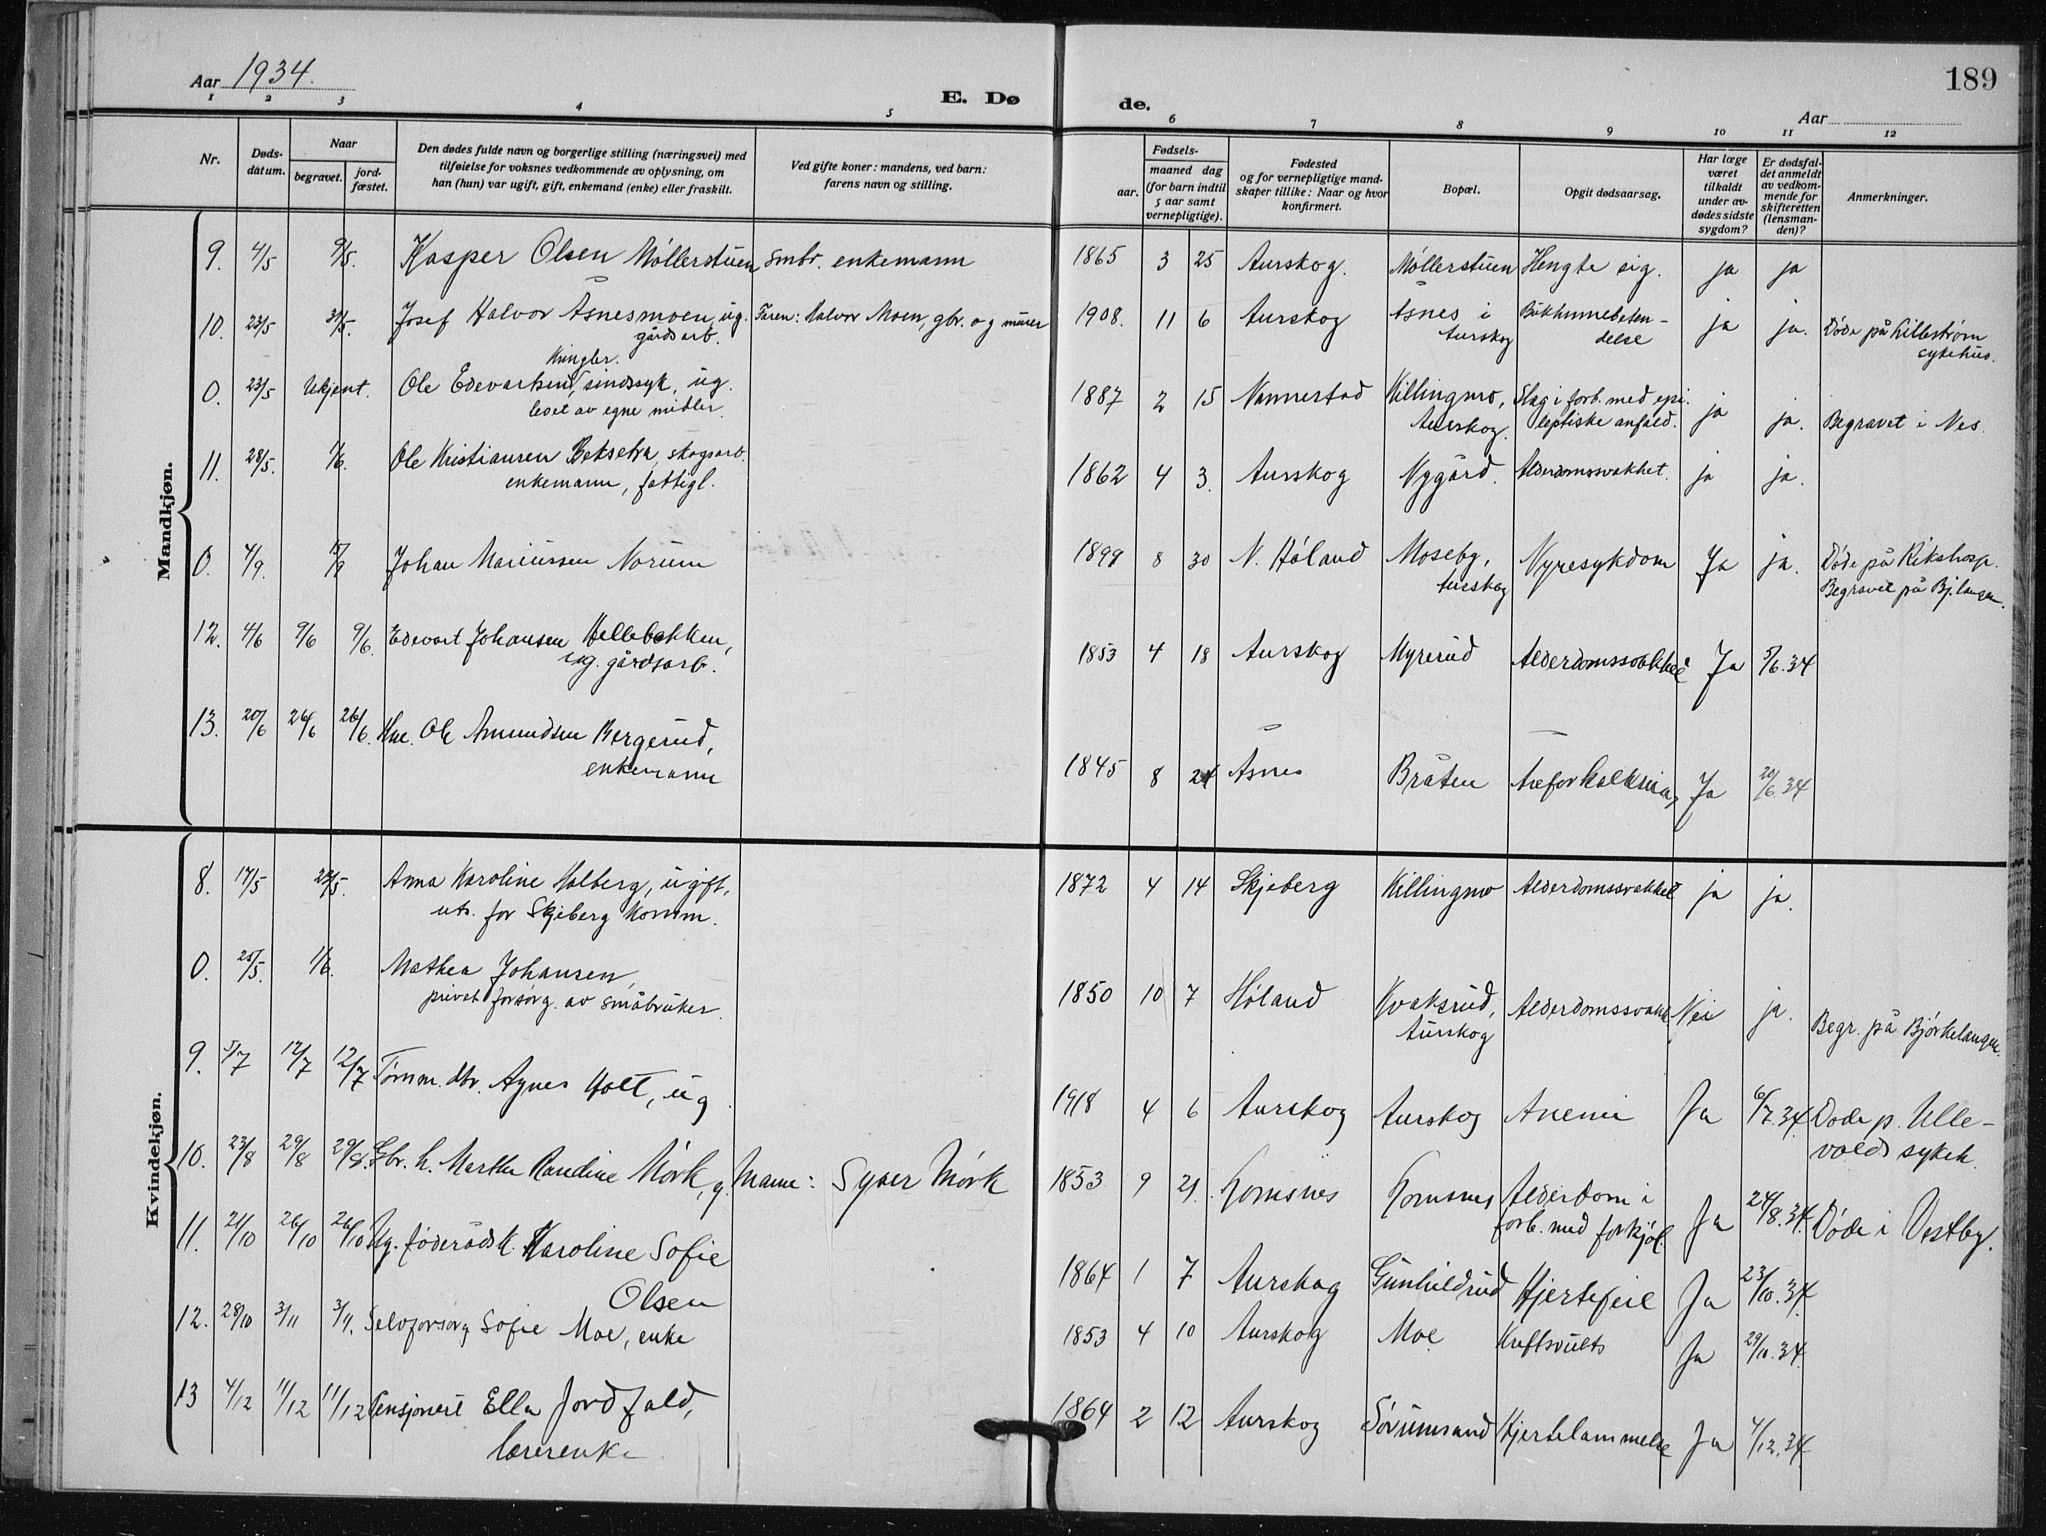 Aar 1934.
E. Dø
de.
189
Aar
1 2 3 4 5 6 7 8 9 10 11 12
Nr. Døds-datum. Naar begravet. jord-fæstet. Den dødes fulde navn og borgerlige stilling (næringsvei) med tilføielse for voksnes vedkommende av oplysning, om han (hun) var ugift, gift, enkemand (enke) eller fraskilt. Ved gifte koner: mandens, ved barn: farens navn og stilling. Fødsels- aar. maaned dag (for barn indtil 5 aar samt vernepligtige). Fødested og for vernepligtige mandskaper tillike: Naar og hvor konfirmert. Bopæl. Opgit dødsaarsag. Har læge været tilkaldt under avdødes sidste sygdom? Er dødsfaldet anmeldt av vedkommende for skifteretten (lensmanden)? Anmerkninger.
Mandkjøn.
9. 4/5 9/5. Kasper Olsen Møllerstuen smbr. enkemann 1865 3 25 Aurskog. Møllerstuen Hengte sig. ja ja
10. 23/5 31/5. Josef Halvor Åsnesmoen, ug. Faren: Halvor Moen, gbr. og murer 1908. 11 6 Aurskog Åsnes i Bukhinnebeten- ja ja. Døde på Lillestrøm
gårdsarb. Aurskog delse sykehus.
Kringler.
0. 23/5 Ukjent. Ole Edevartsen, sindssyk, ug. 1887 2 15 Nannestad Killingmo, Slag i forb. med epi- ja ja. Begravet i Nes.
levet av egne midler. Aurskog. leptiske anfald.
11. 28/5. 1/6. Ole Kristiansen Beksetra, skogsarb. 1862 4 3. Aurskog Nygård. Alderdomssvakhet. ja ja.
enkemann, fattigl.
0. 4/9. 15/9 Johan Mariussen Norum 1899 8 30 N. Høland Moseby, Nyresykdom Ja ja. Døde på Rikshosp.
Aurskog Begravet på Bj.langen.
12. 4/6 9/6 9/6. Edevart Johansen Hellebekken, 1853 4 18 Aurskog Myrerud Alderdomssvakhet Ja 5/6.34
ug. gårdsarb.
13. 20/6 26/6 26/6. Ole Amundsen Bergerud, 1845 8 24 Åsnes Bråten Åreforkalkning Ja 20/6.34
enkemann
Kvindekjøn.
8. 17/5 22/5. Anna Karoline Holberg, ugift, 1872 4 14 Skjeberg Killingmo Alderdomssvakhet ja ja.
uts. for Skjeberg Komm.
0. 25/5. 1/6. Mathea Johansen, 1850 10 7 Høland Kvaksrud, Alderdomssvakh. Nei ja. Begr. på Bjørkelangen.
privat forsørg. av småbruker. Aurskog
9. 5/7 12/7 12/7 Tømm. dtr. Agnes Holt, ug. 1918 4 6 Aurskog Aurskog Anemi Ja 6/7.34. Døde p. Ulle-
vålds sykeh.
10. 23/8 29/8 29/8. Gbr. h. Marthe Randine Mørk, g. Mann: Syver Mørk 1853 9 21. Lomsnes Lomsnes Alderdom i Ja 24/8.34. Døde i Vestby.
forb. med forkjøl.
11. 21/10 26/10 26/10 Ug. føderådsk. Karoline Sofie 1864 1 7 Aurskog Gunhildrud Hjertefeil Ja 23/10.34.
Olsen
12. 28/10 3/11 3/11. Selvforsørg Sofie Moe, enke 1853 4 10 Aurskog Moe Kreftsvulst Ja 29/10.34.
13 4/12 11/12 11/12 Pensjonert Ella Jordfald, 1864 2 12 Aurskog Sørumsand Hjertelammelse Ja 4/12.34.
lærerenke